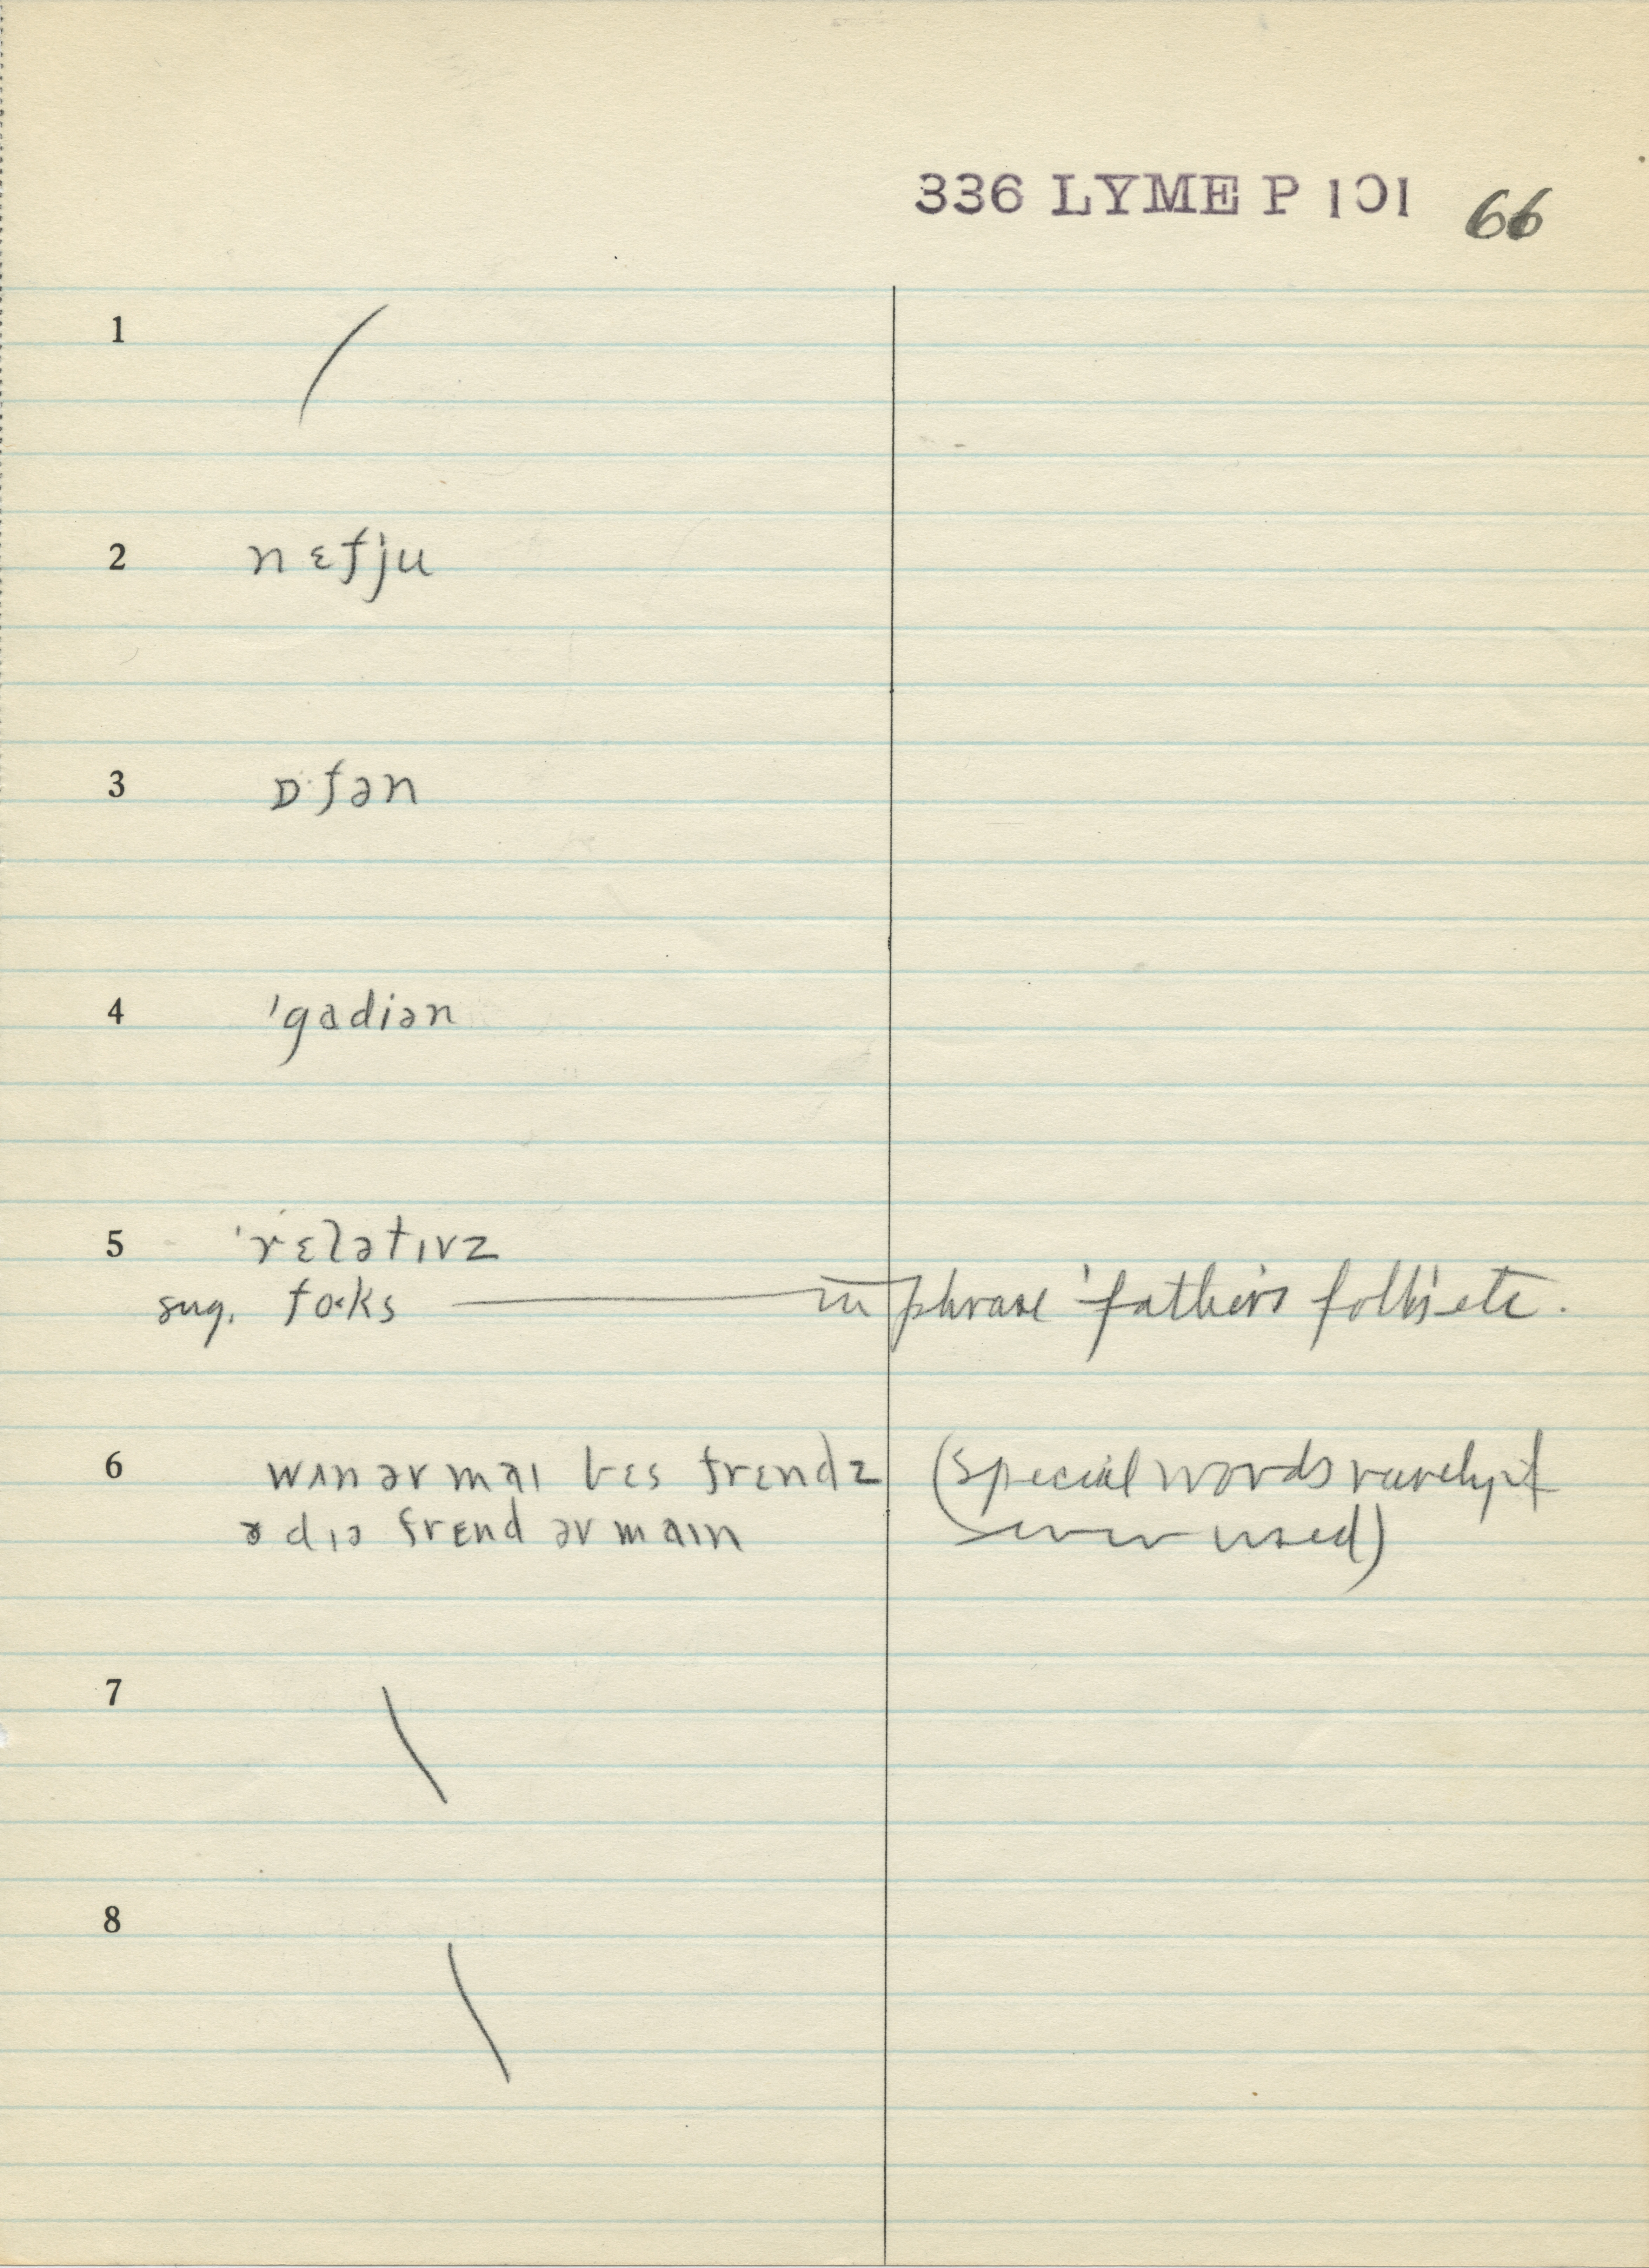 336 LYME P 101 66
1 /
2 nɛfju
3 ɒ·fən
4 'gadiən
5 'rɛlətɪvz
sug. foks — in phrase 'father's folks' etc.
6 wʌn əv maɪ bɛs frɛndz (special words rarely if
ə dɪə frɛnd əv maɪn ever used)
7 \
8 \